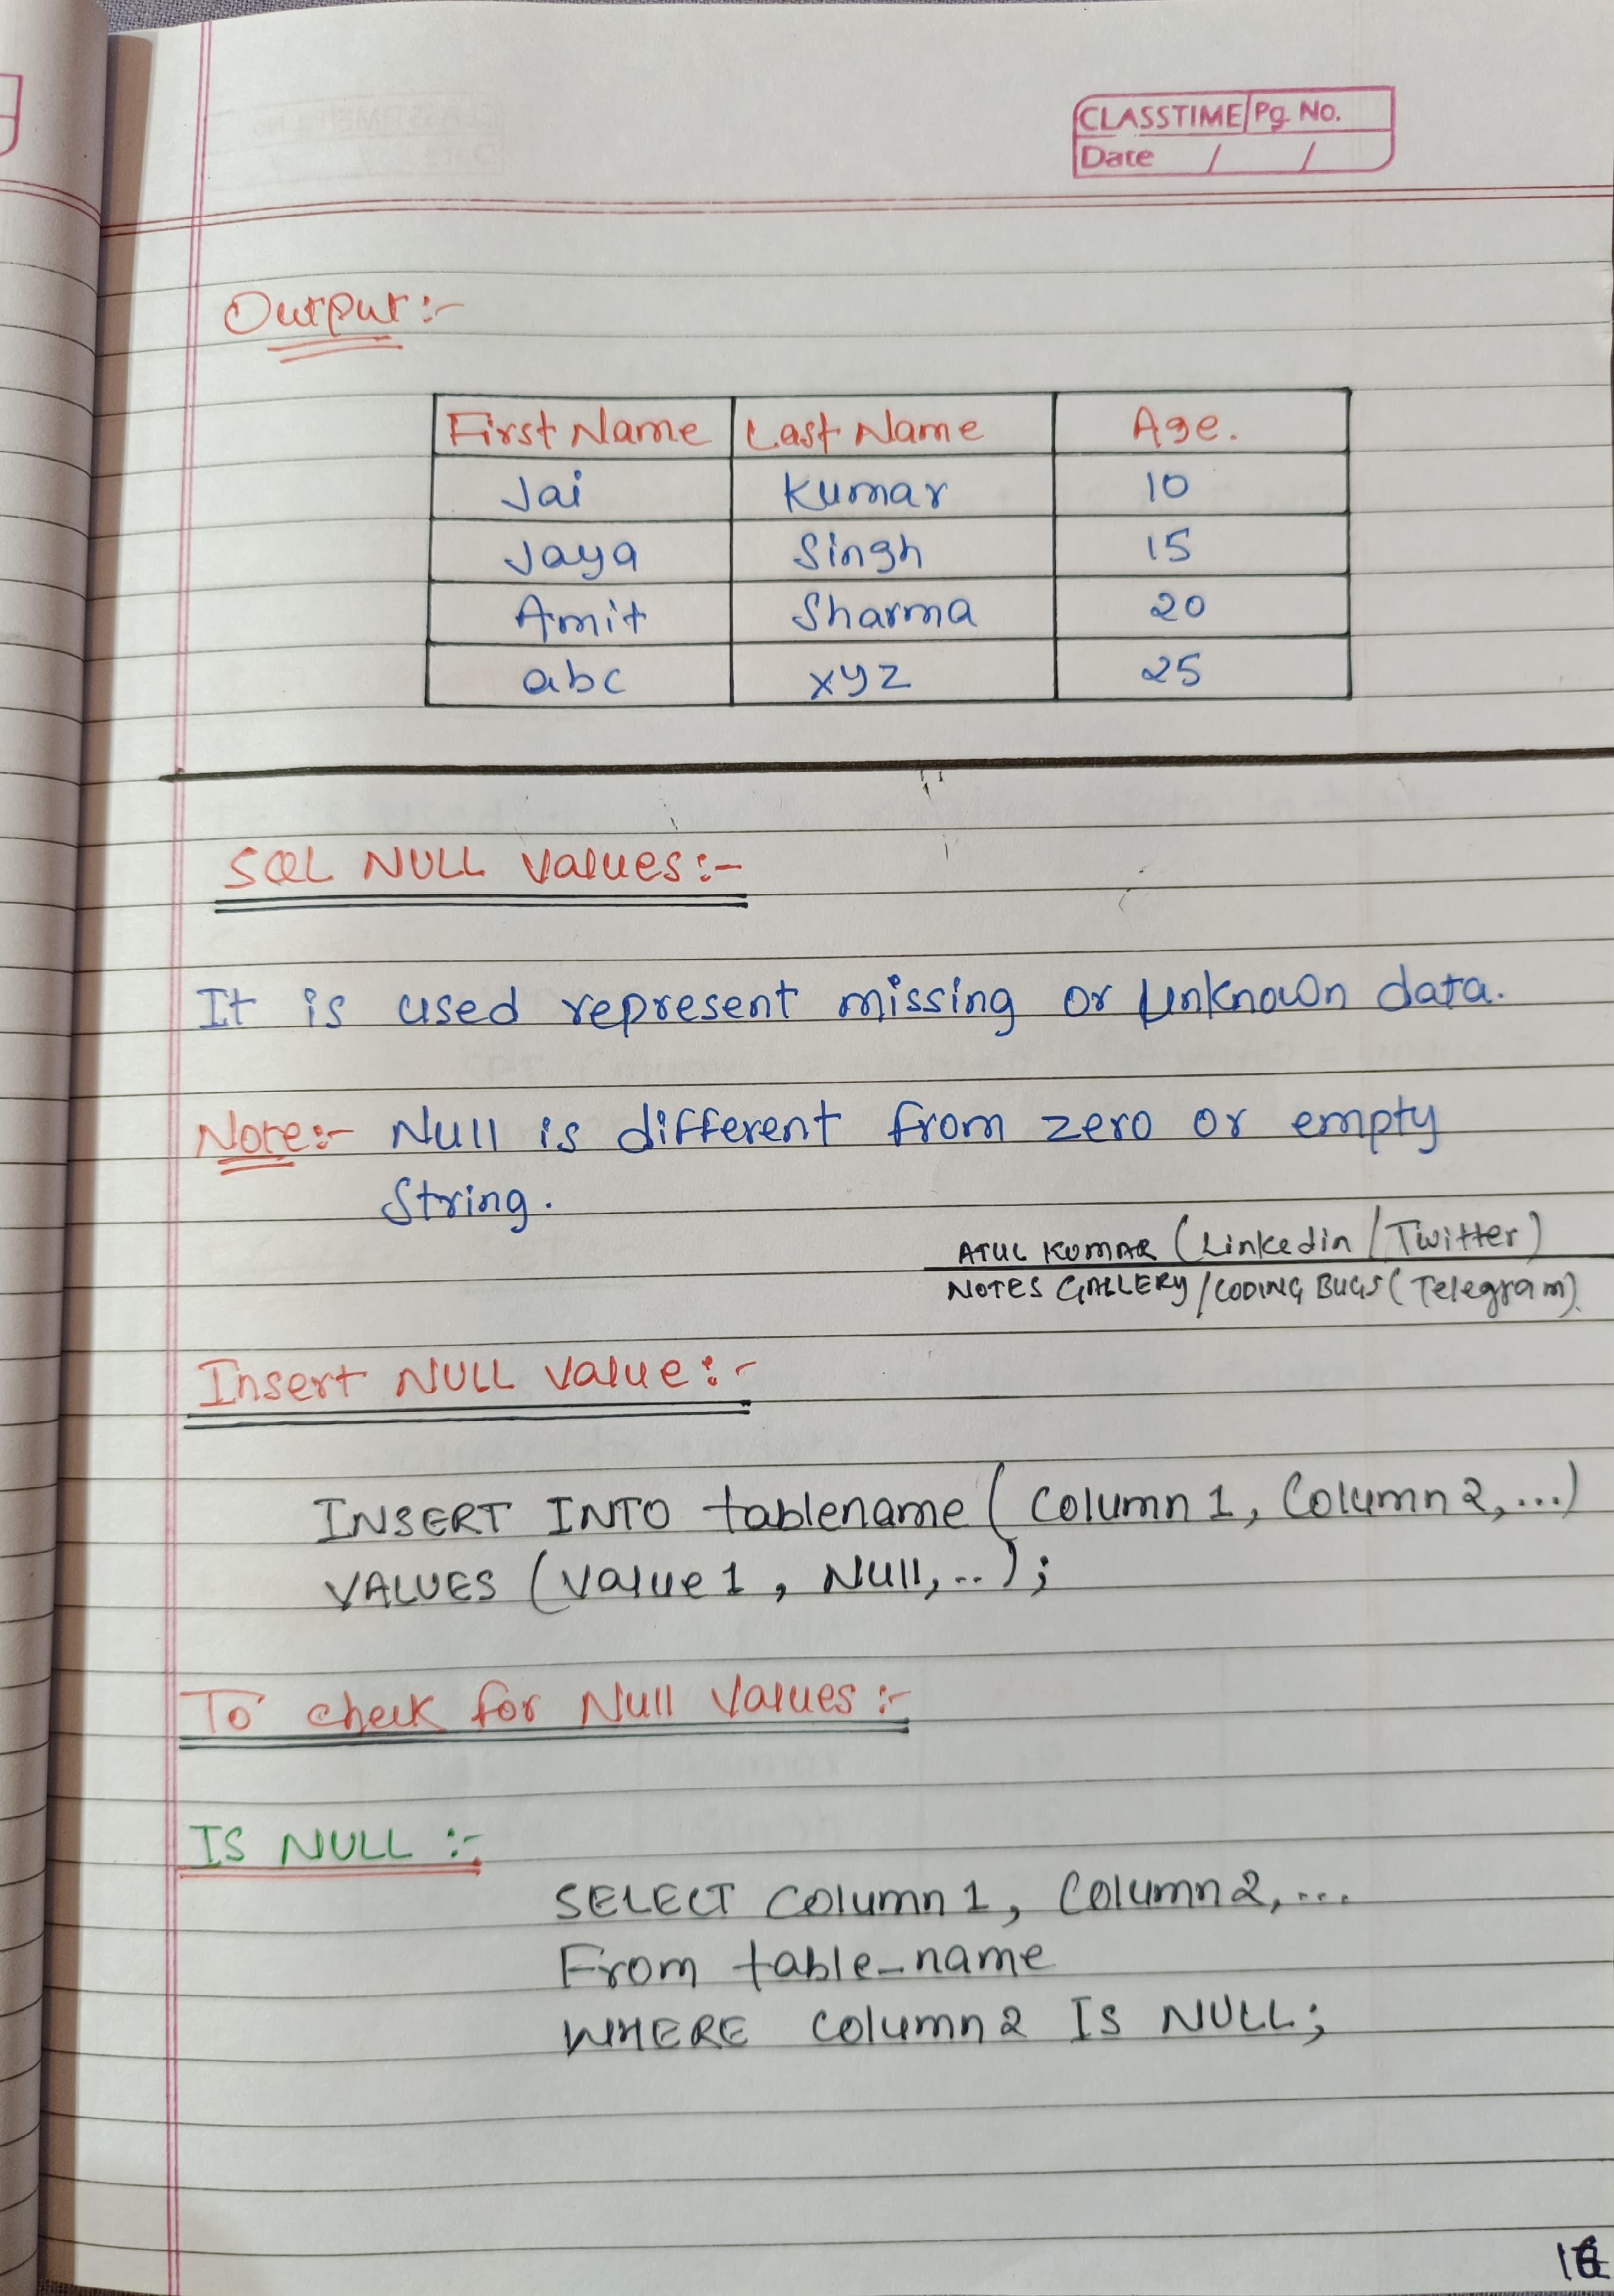 CLASSTIME Pg. No.
Date / /
Output:-
First Name Last Name Age.
Jai Kumar 10
Jaya Singh 15
Amit Sharma 20
abc xyz 25
SQL NULL Values:-
It is used represent missing or Unknown data.
Note:- Null is different from zero or empty
String.
ATUL KUMAR (Linkedin / Twitter)
NOTES GALLERY / CODING BUGS (Telegram).
Insert NULL Value:-
INSERT INTO tablename ( Column 1, Column 2, ...)
VALUES (Value 1 , Null, ..);
To check for Null Values :-
IS NULL :-
SELECT Column 1, Column 2, ...
From table_name
WHERE Column 2 IS NULL;